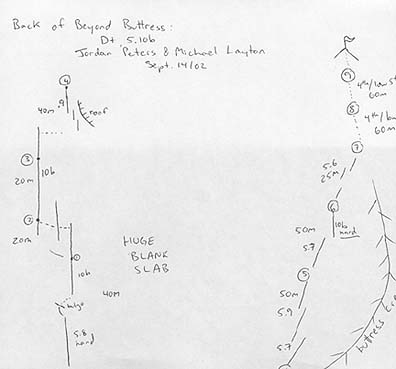 Back of Beyond Buttress:
D+ 5.10b
Jordan Peters & Michael Layton
Sept. 14/02
4
40m .9
roof
3
20m
10b
2
20m
HUGE
BLANK
SLAB
10b
40m
5.8
hand
9
60m
8
60m
7
5.6
25m
6
50m
10b
hard
5.7
5
50m
5.9
5.7
buttress